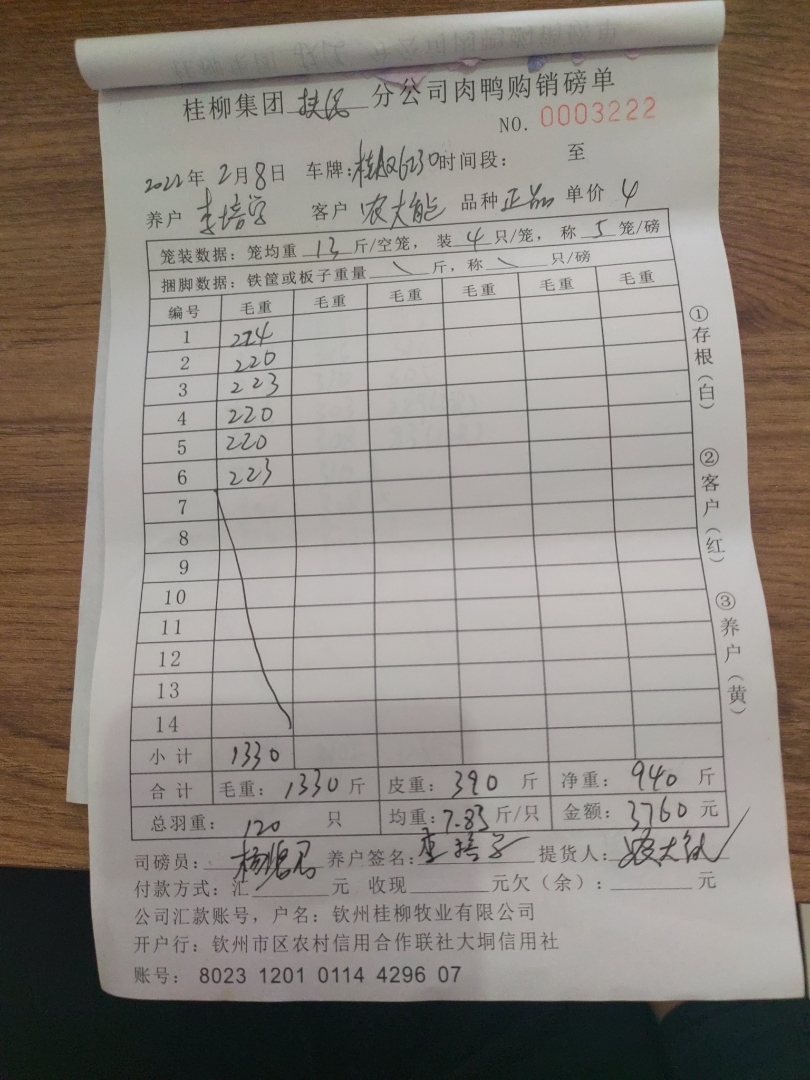 桂柳集团扶绥分公司肉鸭购销磅单
NO. 0003222
2022年2月8日 车牌:桂AQ6230时间段: 至
养户 李培学 客户 农大能 品种 正品 单价 4
笼装数据: 笼均重 13 斤/空笼, 装 4 只/笼, 称 5 笼/磅
捆脚数据: 铁筐或板子重量 \ 斤, 称 \ 只/磅
编号 毛重 毛重 毛重 毛重 毛重 毛重
1 224
2 220
3 223
4 220
5 220
6 223
7
8
9
10
11
12
13
14
小计 1330
合计 毛重: 1330 斤 皮重: 390 斤 净重: 940 斤
总羽重: 120 只 均重: 7.83 斤/只 金额: 3760 元
司磅员: 养户签名: 李培学 提货人: 农大能
付款方式: 汇 元 收现 元欠(余): 元
公司汇款账号, 户名: 钦州桂柳牧业有限公司
开户行: 钦州市区农村信用合作联社大垌信用社
账号: 8023 1201 0114 4296 07
①存根(白)
②客户(红)
③养户(黄)